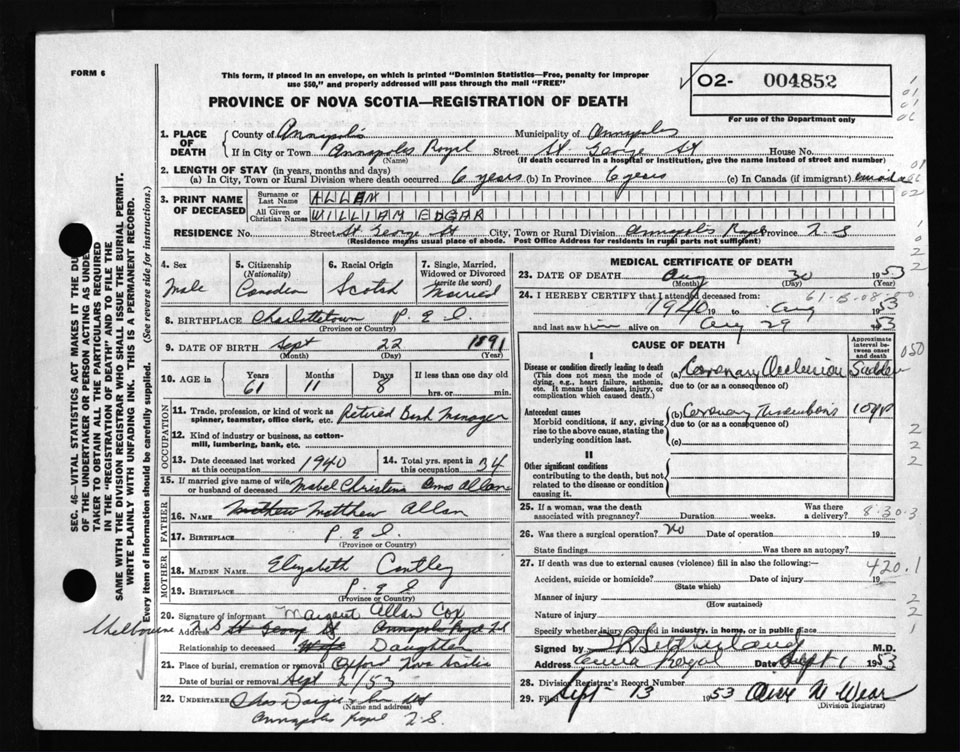 FORM 6
This form, if placed in an envelope, on which is printed "Dominion Statistics—Free, penalty for improper
use $50," and properly addressed will pass through the mail "FREE"
PROVINCE OF NOVA SCOTIA—REGISTRATION OF DEATH
02- 004852
For use of the Department only
1. PLACE OF DEATH County of Annapolis Municipality of Annapolis
If in City or Town Annapolis Royal Street St George St House No.
(Name) (If death occurred in a hospital or institution, give the name instead of street and number)
2. LENGTH OF STAY (in years, months and days)
(a) In City, Town or Rural Division where death occurred 6 years (b) In Province 6 years (c) In Canada (if immigrant)
3. PRINT NAME OF DECEASED Surname or Last Name ALLAN
All Given or Christian Names WILLIAM EDGAR
RESIDENCE No. Street St George St City, Town or Rural Division Annapolis Royal Province N S
(Residence means usual place of abode. Post Office Address for residents in rural parts not sufficient)
4. Sex Male
5. Citizenship (Nationality) Canadian
6. Racial Origin Scotch
7. Single, Married, Widowed or Divorced (write the word) Married
8. BIRTHPLACE Charlottetown P. E. I.
(Province or Country)
9. DATE OF BIRTH Sept 22 1891
(Month) (Day) (Year)
10. AGE in Years 61 Months 11 Days 8 If less than one day old
hrs. or min.
OCCUPATION
11. Trade, profession, or kind of work as spinner, teamster, office clerk, etc. Retired Bank Manager
12. Kind of industry or business, as cotton-mill, lumbering, bank, etc.
13. Date deceased last worked at this occupation 1940
14. Total yrs. spent in this occupation 34
15. If married give name of wife or husband of deceased Mabel Christina Allan
FATHER
16. NAME Matthew Allan
17. BIRTHPLACE P. E. I.
(Province or Country)
MOTHER
18. MAIDEN NAME Elizabeth
19. BIRTHPLACE P. E. I.
(Province or Country)
20. Signature of informant Margaret Allan Cox
Shelbourne N S Address St George St Annapolis Royal N S
Relationship to deceased Wife Daughter
21. Place of burial, cremation or removal Oxford Nova Scotia
Date of burial or removal Sept 2/53
22. UNDERTAKER
(Name and address)
Annapolis Royal N. S.
MEDICAL CERTIFICATE OF DEATH
23. DATE OF DEATH Aug 30 1953
(Month) (Day) (Year)
24. I HEREBY CERTIFY that I attended deceased from:
1940 19 to Aug 1953
and last saw him alive on Aug 29 1953
CAUSE OF DEATH
Approximate interval between onset and death
I
Disease or condition directly leading to death
(This does not mean the mode of dying, e.g., heart failure, asthenia, etc. It means the disease, injury, or complication which caused death.)
(a) Coronary Occlusion Sudden
due to (or as a consequence of)
Antecedent causes
Morbid conditions, if any, giving rise to the above cause, stating the underlying condition last.
(b) Coronary Thrombosis
due to (or as a consequence of)
(c)
II
Other significant conditions
contributing to the death, but not related to the disease or condition causing it.
25. If a woman, was the death associated with pregnancy? Duration weeks. Was there a delivery?
26. Was there a surgical operation? No Date of operation 19
State findings Was there an autopsy?
27. If death was due to external causes (violence) fill in also the following:—
420.1
Accident, suicide or homicide? Date of injury 19
(State which)
Manner of injury
(How sustained)
Nature of injury
Specify whether injury occurred in industry, in home, or in public place
Signed by M.D.
Address Anna Royal Date Sept 1 1953
28. Division Registrar's Record Number
29. Filed Sept 13 1953
(Division Registrar)
SEC. 46—VITAL STATISTICS ACT MAKES IT THE DU
OF THE UNDERTAKER OR PERSON ACTING AS UNDER
TAKER TO OBTAIN ALL THE PARTICULARS REQUIRED
IN THE "REGISTRATION OF DEATH" AND TO FILE THE
SAME WITH THE DIVISION REGISTRAR WHO SHALL ISSUE THE BURIAL PERMIT.
WRITE PLAINLY WITH UNFADING INK. THIS IS A PERMANENT RECORD.
Every item of information should be carefully supplied. (See reverse side for instructions.)